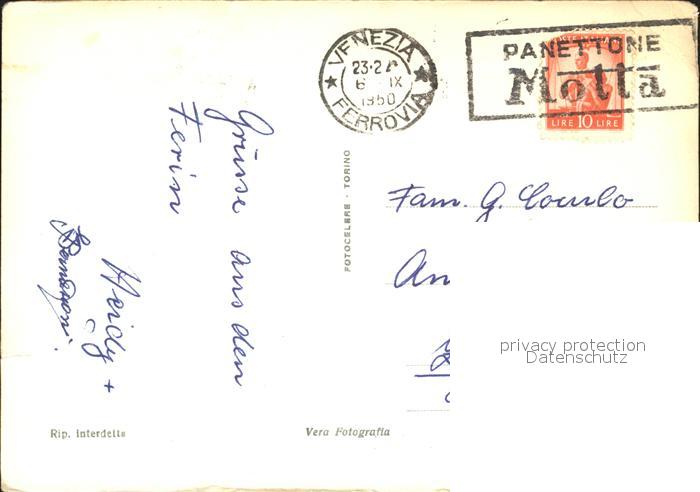 VENEZIA
23-2
6 IX
1950
FERROVIA
PANETTONE
Motta
LIRE 10 LIRE
Grüsse aus den
Ferien
Heidy +
FOTOCELERE - TORINO
Fam. G.
privacy protection
Datenschutz
Rip. interdetta
Vera Fotografia